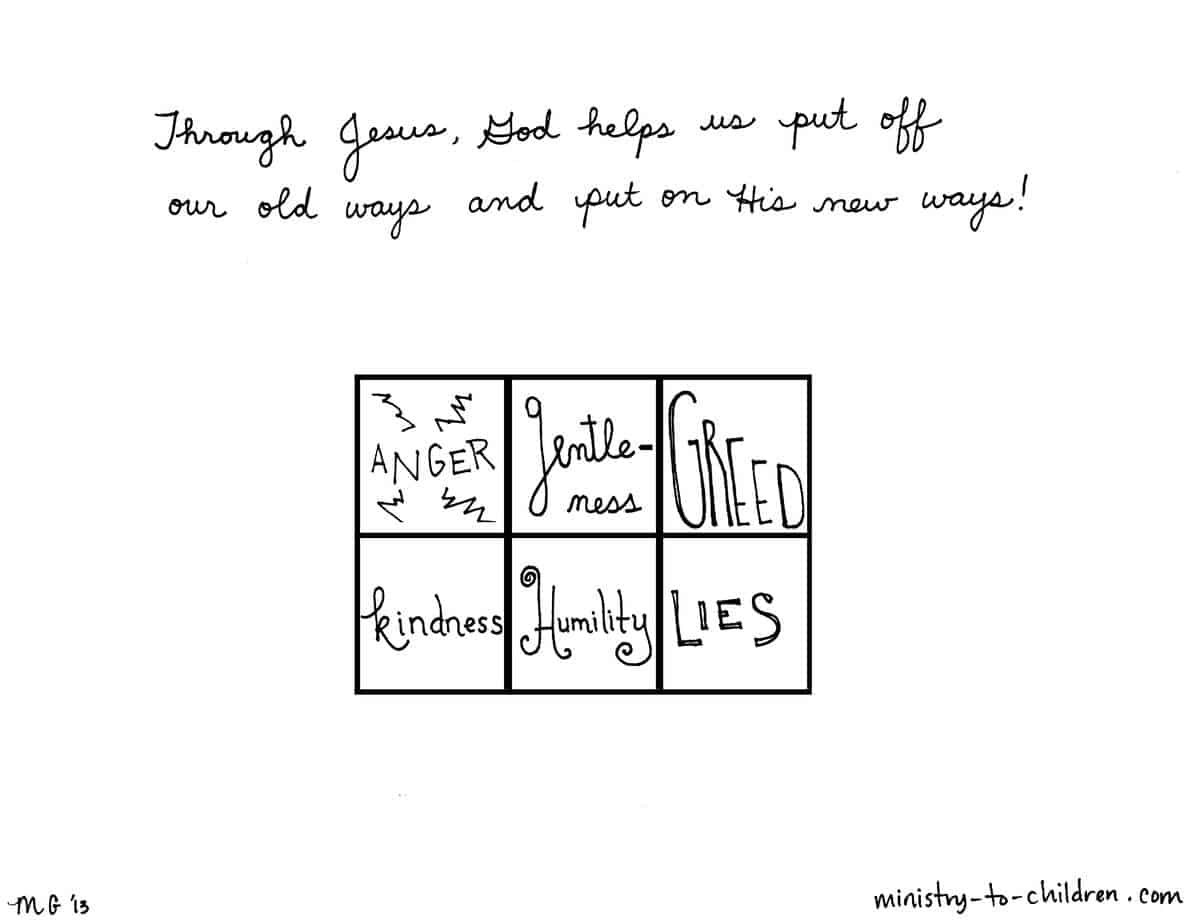 Through Jesus, God helps us put off
our old ways and put on His new ways!
ANGER
Gentle-
ness
GREED
kindness
Humility
LIES
MG '13
ministry-to-children.com